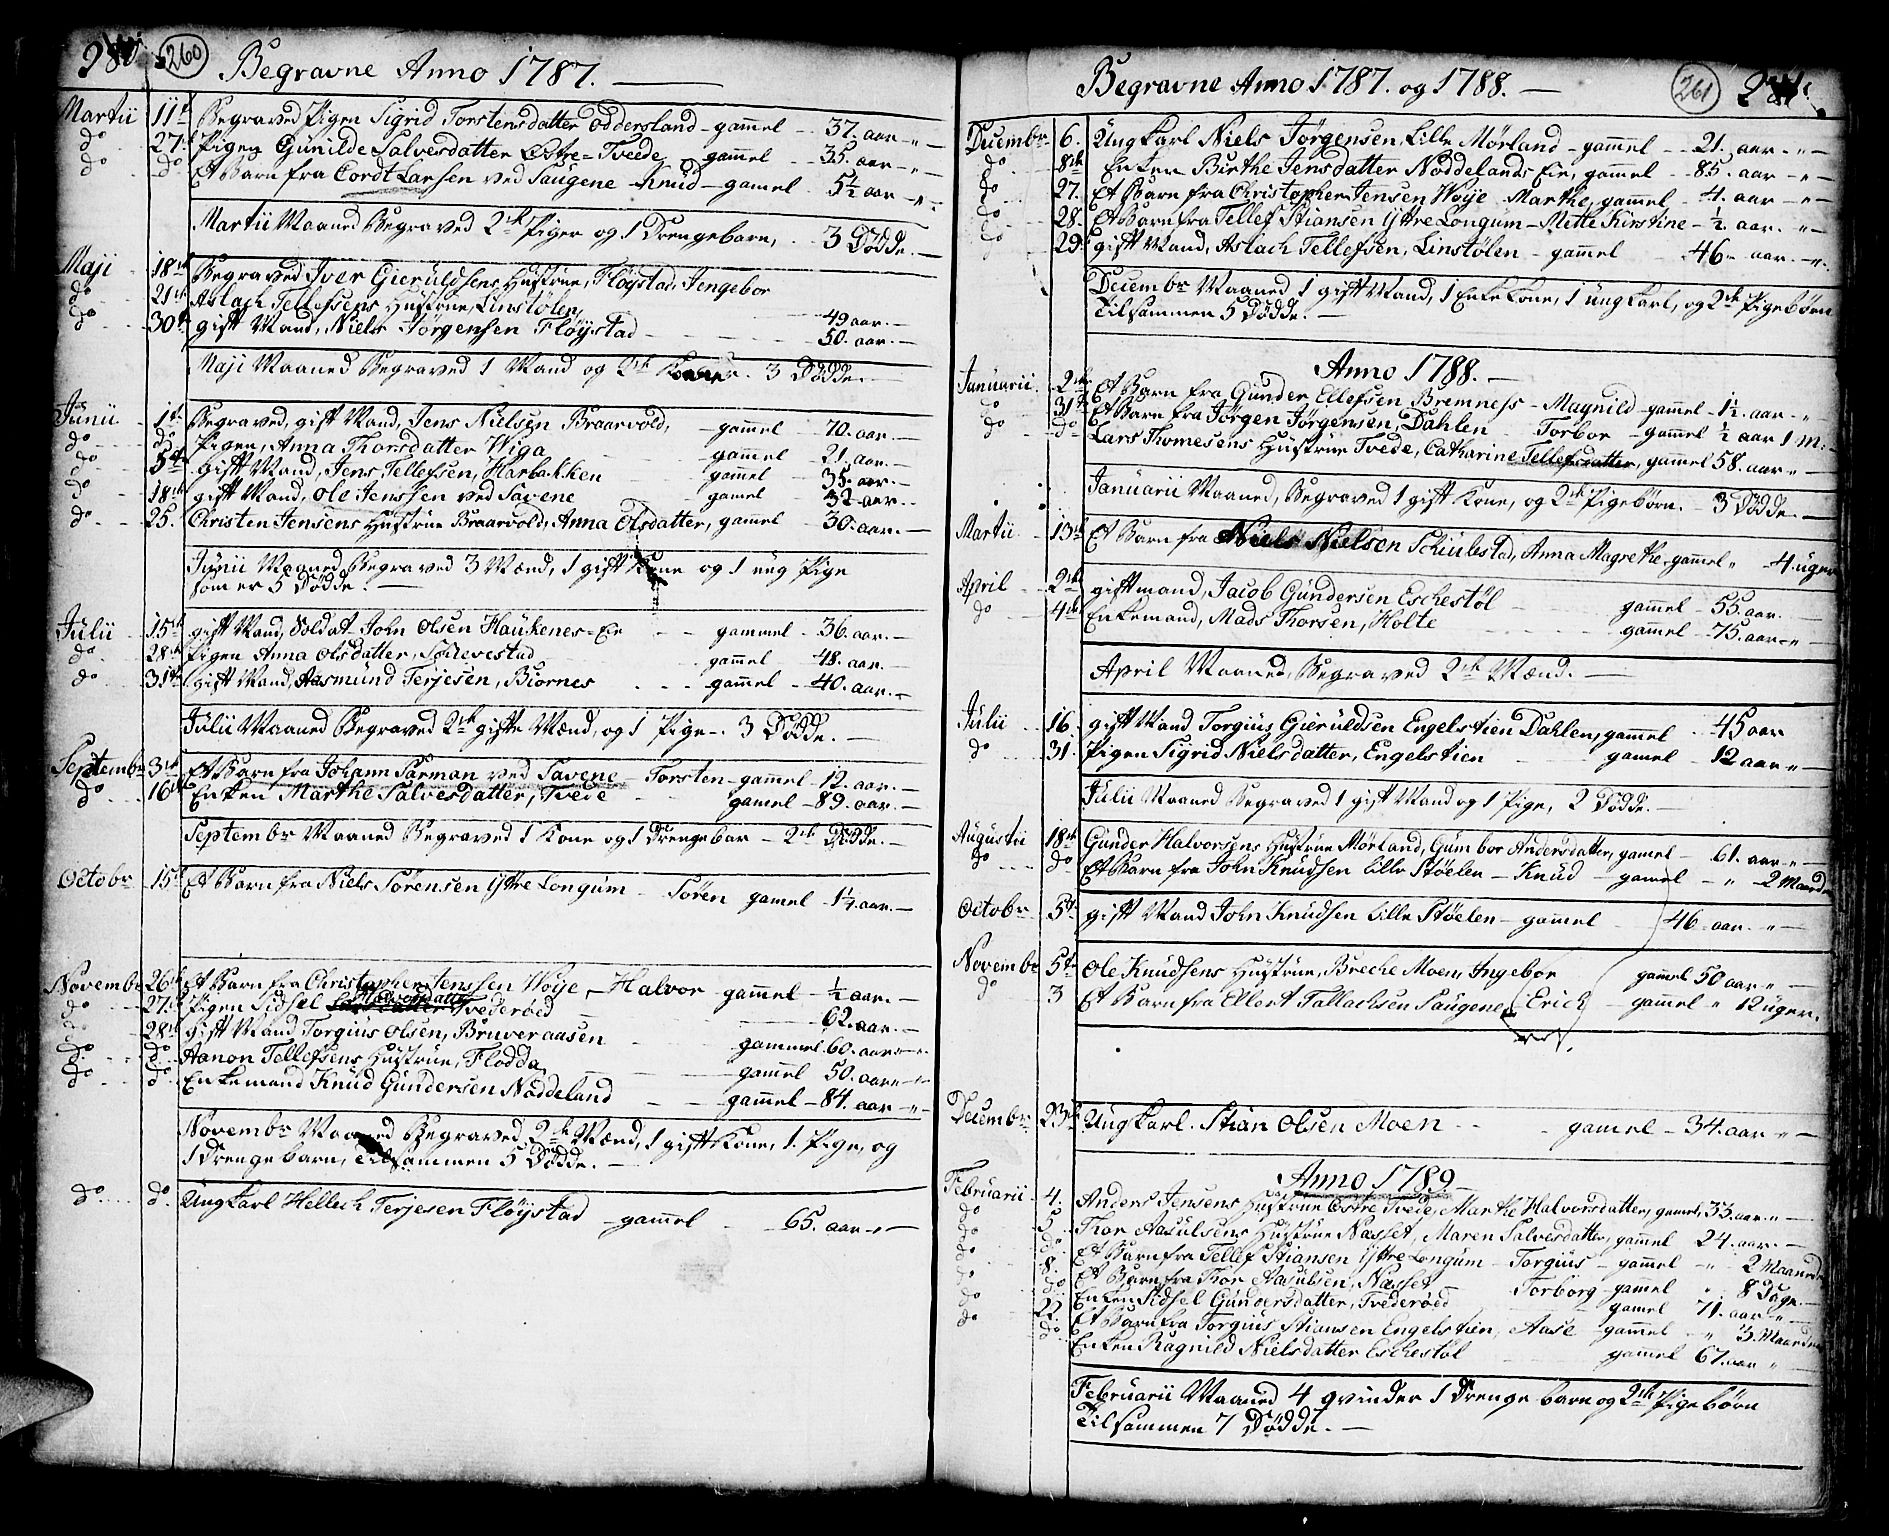 280. 260 Begravne Anno 1787. —
Martii 11te Begraved Pigen Sigrid Torstensdatter Oddersland - gam̄el - 37. aar - " -
do 27. Pigen Gunilde Salvesdatter Østre-Tvede gam̄el - 35. aar - " -
do do Et Barn fra Cordt Larsen ved Saugene - Knud - gamel - 5½ aar - " -
Martii Maaned Begraved 2de Piger og 1 Drengebarn, 3 Dödde. —
Maji 18de Begraved Iver Gieruldsens Hustrue, Fløystad, Jengebor
do 21de Aslach Tellefsens Hustrue, Linstølen, 49 aar. —
do 30te gift Mand, Niels Jørgensen Fløystad 50. aar. —
Maji Maaned Begraved 1 Mand og 2de Koner. 3 Dödde. —
Junii 1te Begraved, gift Mand, Jens Nielsen Braarvold, - gam̄el 70. aar. —
do do Pigen, Anna Thorsdatter Wiga - gam̄el 21. aar. —
do 5te gift Mand, Jens Tellefsen, Harbakken gam̄el 35. aar. —
do 18de gift Mand, Ole Jenssen ved Savene gamel 32. aar. —
do 25. Christen Jensens Hustrue Braarvold, Anna Olsdatter, gam̄el 30. aar. —
Junii Maaned Begraved 3 Mænd, 1 gift Kone og 1 ung Pige
som er 5 Dödde. —
Julii 15de gift Mand, Soldat John Olsen Haukenes-Eie gammel - 36. aar. —
do 28de Pigen Anna Olsdatter, gam̄el - 48. aar. —
do 31te gift Mand, Aasmund Terjesen, Biornes gam̄el - 40. aar. —
Julii Maaned Begraved 2de gifte Mænd, og 1 Pige -. 3 Dödde. —
Septembr 3de Et Barn fra Johann Sarman ved Savene - Torsten - gam̄el - 12. aar. —
do 16de Enken Marthe Salvesdatter, Tvede gam̄el - 89. aar. —
Septembr Maaned Begraved 1 Kone og 1 Drengebar - 2de Dödde. —
Octobr 15de Et Barn fra Niels Sörensen Yttre Longum - Sören gamel - 1¼ aar. —
Novembr 26de Et Barn fra Christopher Jenssen Woye, - Halvor - gam̄el - ½ aar. —
do 27. Pigen Sidsel Halvorsdatter Tvederøed - 62. aar. —
do 28de gift Mand Torgius Olsen, Bruveraasen gammel 60. aar " —
do do Aanon Tellefsens Hustrue, Flodda, gam̄el 50. aar " —
do do Enkemand Knud Gundersen Nøddeland gam̄el - 84. aar - " -
Novembr Maaned Begraved 2de Mænd, 1 gift Kone, 1. Pige, og
1 Drengebarn, Tilsammen 5 Dödde. —
do do. Ungkarl Hellich Terjesen Fløystad - gam̄el 65. aar - " —
Begravne Anno 1787. og 1788. — 261 281.
Decembr 6. Ungkarl Niels Jörgensen, Lille Mørland - gam̄el - 21. aar - " —
do 8de Enken Birthe Jensdatter Nøddelands Eie, gam̄el - 85. aar - " —
do 27. Et Barn fra Christopher Jensen Woye - Marthe, gam̄el - 4. aar - " —
do 28. Et Barn fra Tellef Stiansen Yttre Longum - Mette Kirstine - ½. aar. " —
do 29. gift Mand, Aslach Tellefsen, Linstølen - gam̄el 46 - aar. - " -
Decembr Maaned 1 gift Mand, 1 Enkekone, 1 ungkarl, og 2de Pigebörn
Tilsammen 5 Dödde. —
Anno 1788. —
Januarii 2de Et Barn fra Gunder Ellefsen Bremness - Magnild - gam̄el - 1½. aar - "
do 31te Et Barn fra Jörgen Jörgensen, Dahlen Torbor - gam̄el ½ aar 1 M:
do do Lars Thomesens Hustrue Tvede, Catharine Tellefsdatter, gamel 58. aar " —
Januarii Maaned, Begraved 1 gift Kone, og 2de Pigebörn. - 3 Dödde. —
Martii 13de Et Barn fra Niels Nielsen Schiulestad, Anna Magrethe - gam̄el " - 4. uger
April 2de gift mand, Jacob Gundersen Eschestöl gam̄el - 55. aar.
do 4de Enkemand, Mads Thorsen, Holte gam̄el - 75. aar - " -
April Maaned, Begraved 2de Mænd. —
Julii 16. gift Mand Torgius Gieruldsen Engelstien Dahlen, gam̄el 45 aar
do 31. Pigen Sigrid Nielsdatter, Engelstien gamel - 12 aar " —
Julii Maaned Begraved 1 gift Mand og 1 Pige, 2 Dödde. —
Augustii 18de Gunder Halvorsens Hustrue Mørland, Gumbor Andersdatter, gamel - 61. aar " —
do do Et Barn fra John Knudsen Lille Støelen - Knud - gamel - " 2 Maaneder
Octobr 5te gift Mand John Knudsen Lille Støelen - gam̄el 46 - aar. " —
Novembr 5te Ole Knudsens Hustrue, Breche Moen, Ingebor gam̄el 50 aar " —
do 3 Et Barn fra Ellert Tallachsen Saugene, (Erich) - gam̄el " 12 uger.
Decembr 23de Ungkarl. Stian Olsen Moen gamel - 34. aar " —
Anno 1789. —
Februarii 4. Anders Jensens Hustrue Østre Tvede, Marthe Halvorsdatter, gamel, 33. aar " —
do 5. Thor Aasulsens Hustrue Nasset, Maren Salvesdatter, gam̄el 24. aar. —
do do Et Barn fra Tellef Stiansen Yttre Longum - Torgius - gam̄el - " 2 Maaneder
do 8. Et Barn fra Thor Aasulsen, Nasset Torborg - gam̄el " 8 Dage. —
do do Enken Sidsel Gundersdatter, Tvederøed gamel 71. aar " —
do 22. Et Barn fra Torgius Stiansen Engelstien, Aase - gam̄el - " 3. Maaneder
do Enken Ragnild Nielsdatter Eschestøl gam̄el 67. aar " —
Februarii Maaned 4 qvinder 1 Drenge barn og 2de Pigebörn
Tilsammen 7 Dödde. —